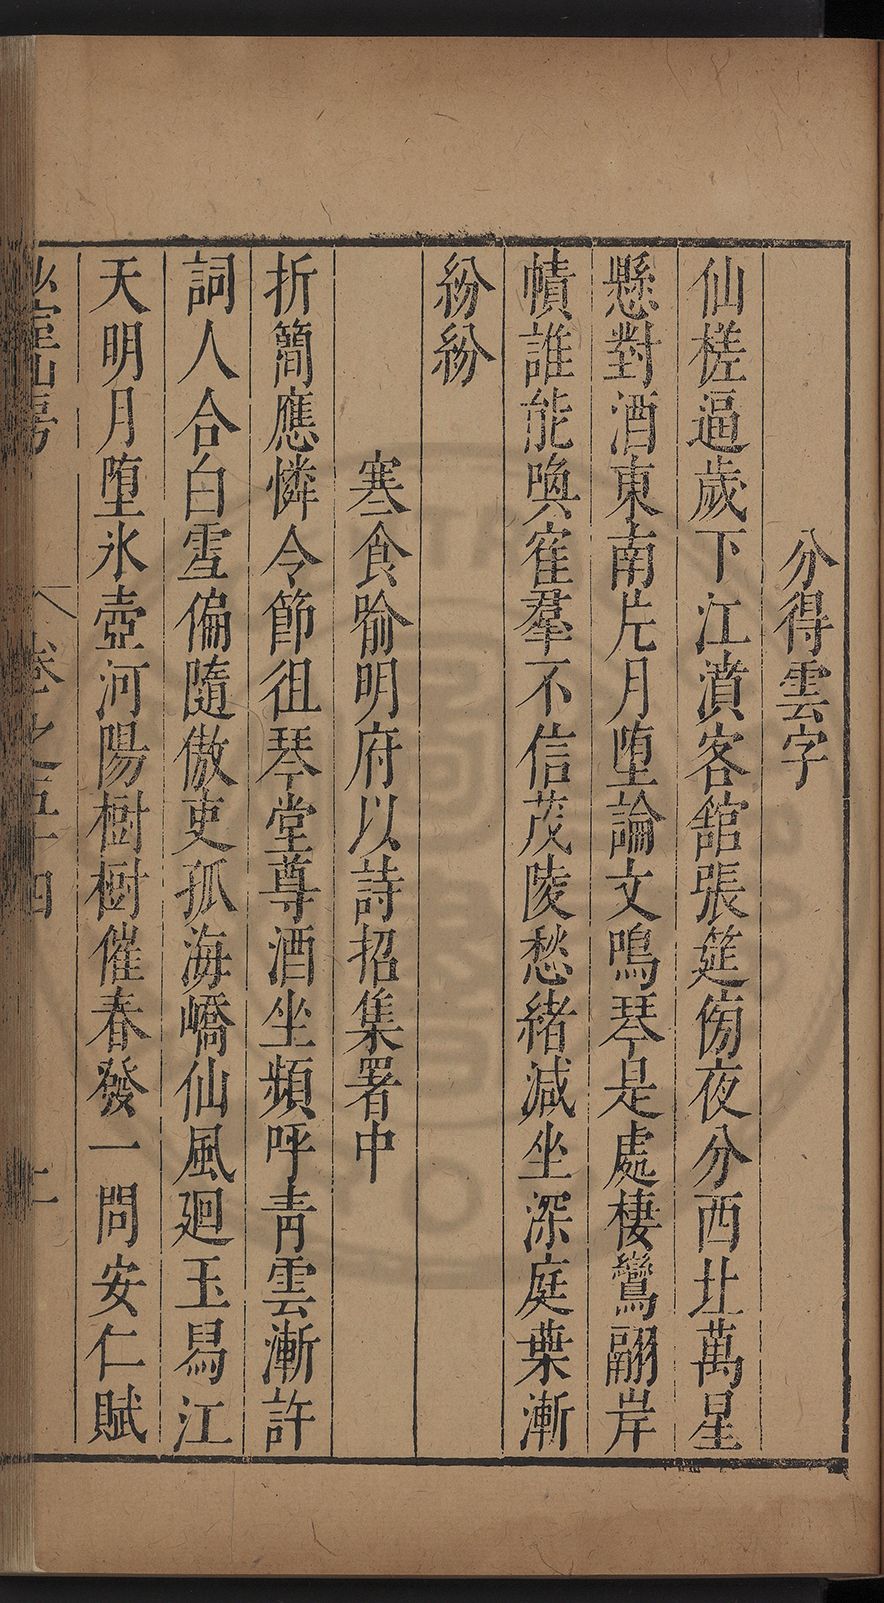 分得雲字
仙槎逼歲下江濆客舘張筵傍夜分西北萬星
懸對酒東南片月堕論文鳴琴是處棲鸞翮岸
幘誰能喚隺羣不信茂陵愁緒減坐深庭葉漸
紛紛
寒食喻明府以詩招集署中
折簡應憐令節徂琴堂尊酒坐頻呼青雲漸許
詞人合白雪偏隨傲吏孤海嶠仙風廻玉舄江
天明月堕氷壺河陽樹樹催春發一問安仁賦
卷之五十四
二